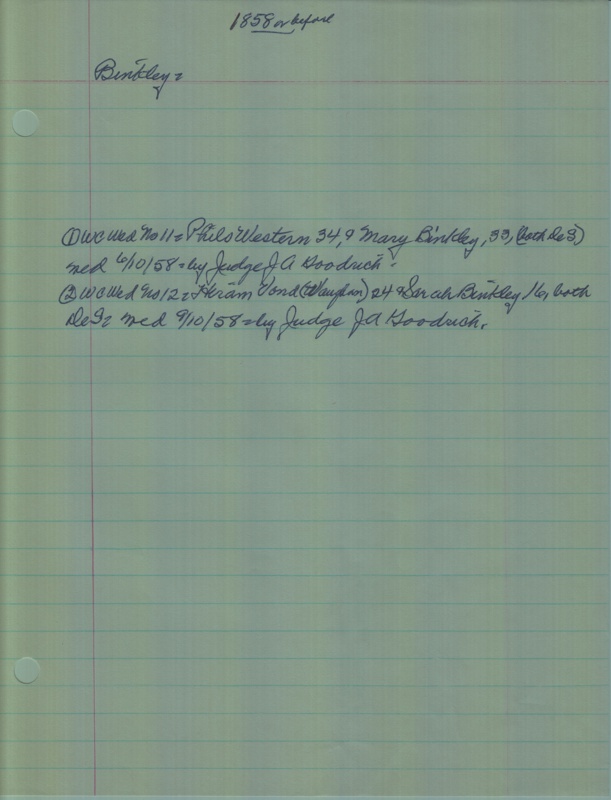 1858 or before
Binkley =
① WC Wed No 11 = Philo Western 34, & Mary Binkley, 33, (both DeS)
wed 6/10/58 = by Judge J A Goodrich.
② WC Wed No 12 = Hiram Vond (Vaughn) 24 & Sarah Binkley 16, both
DeS, wed 9/10/58 = by Judge J A Goodrich.